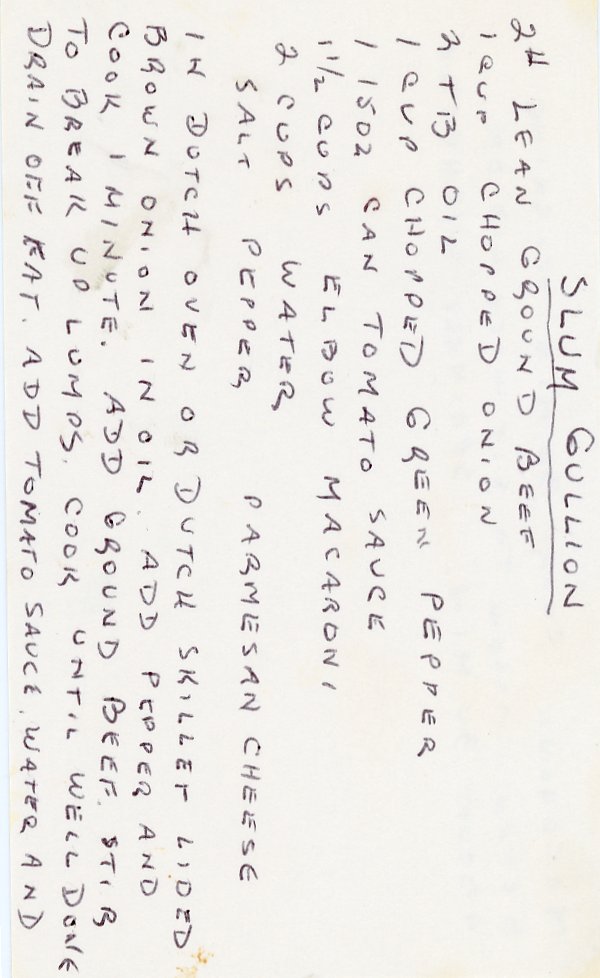 SLUM GULLION
2# LEAN GROUND BEEF
1 CUP CHOPPED ONION
3 TB OIL
1 CUP CHOPPED GREEN PEPPER
1 15OZ CAN TOMATO SAUCE
1 1/2 CUPS ELBOW MACARONI
2 CUPS WATER
SALT PEPPER PARMESAN CHEESE
IN DUTCH OVEN OR DUTCH SKILLET LIDED
BROWN ONION IN OIL. ADD PEPPER AND
COOK 1 MINUTE. ADD GROUND BEEF. STIR
TO BREAK UP LUMPS. COOK UNTIL WELL DONE
DRAIN OFF FAT. ADD TOMATO SAUCE, WATER AND